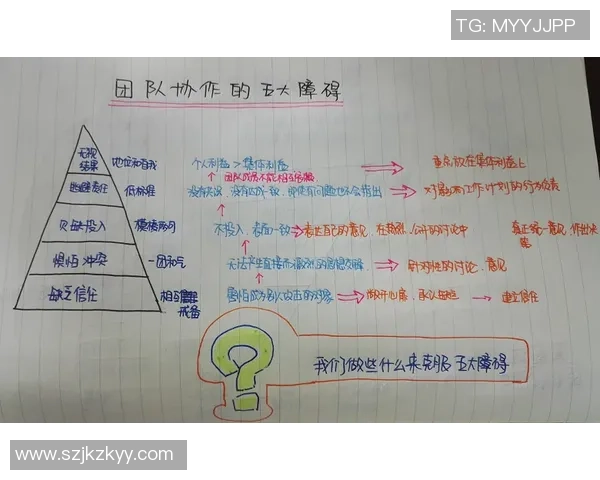 TG: MYYJJPP
团队协作的五大障碍
无视结果 地位和自我 个人利益 > 集体利益 重点放在集体利益上
团队成员不能相互
逃避责任 低标准 没有 对影响工作计划的行为负责
欠缺投入 模棱两可 不投入,表面一致 表达自己的意见,在 公开的讨论中 真正统一意见,作出决策
惧怕冲突 一团和气 无法产生直接而激烈的思想交锋 针对性的讨论、意见
缺乏信任 相互 戒备 害怕成为别人攻击的对象 敞开心扉,承认 建立信任
?
我们做些什么来克服五大障碍
www.szjkzkyy.com